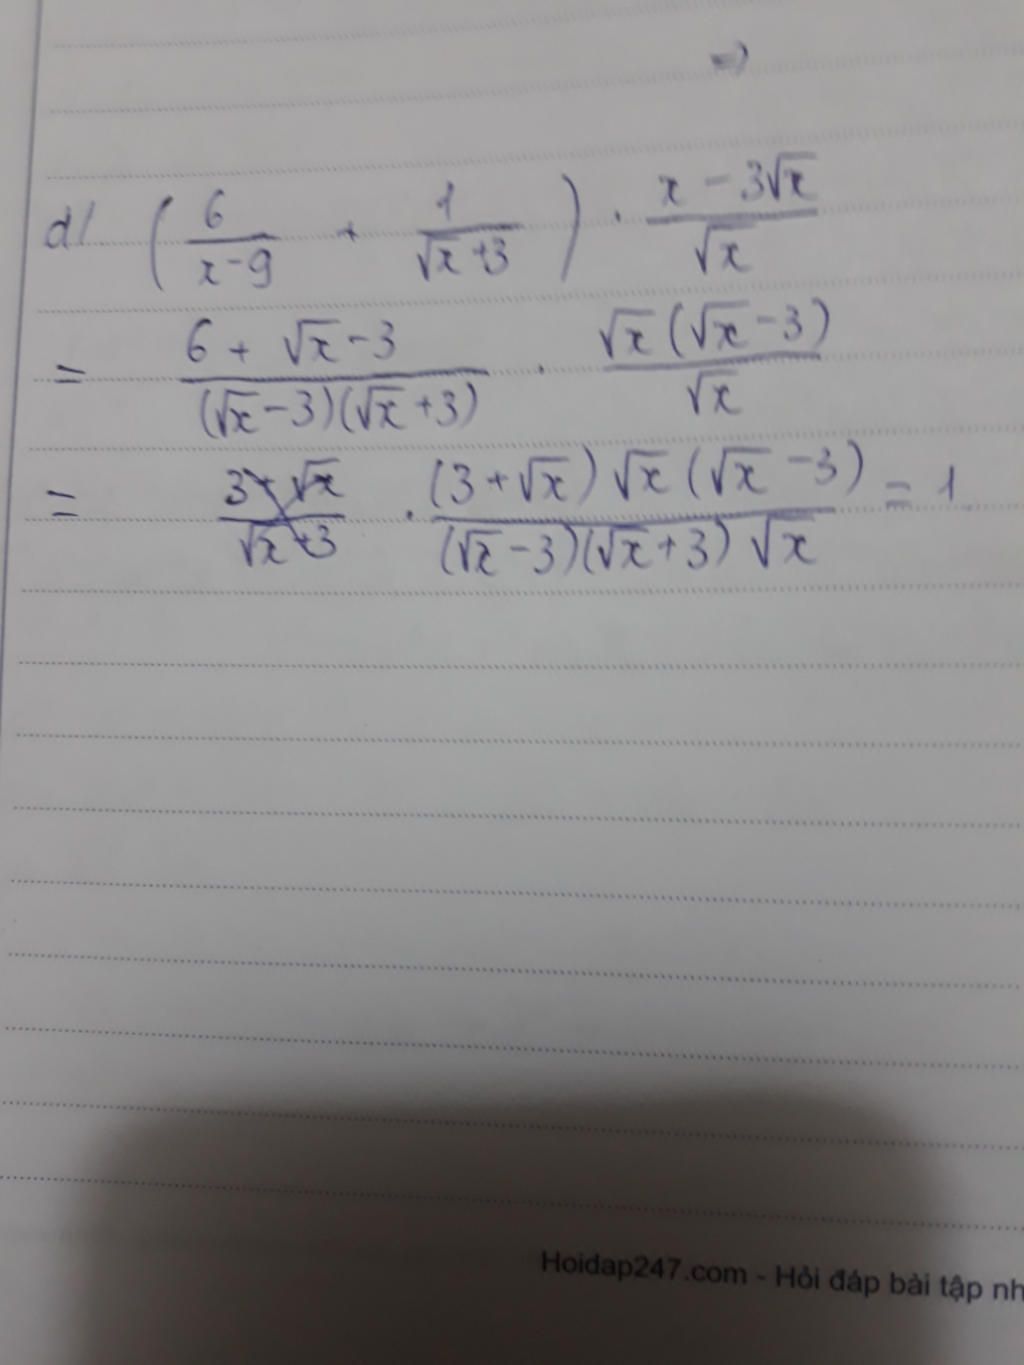 ⇒
d/ ( 6/(x-9) + 1/(√x+3) ) . (x - 3√x)/√x
= (6 + √x - 3)/((√x - 3)(√x + 3)) . √x(√x - 3)/√x
= (3 + √x)/(√x + 3) . (3 + √x)√x(√x - 3)/((√x - 3)(√x + 3)√x) = 1.
Hoidap247.com - Hỏi đáp bài tập nh